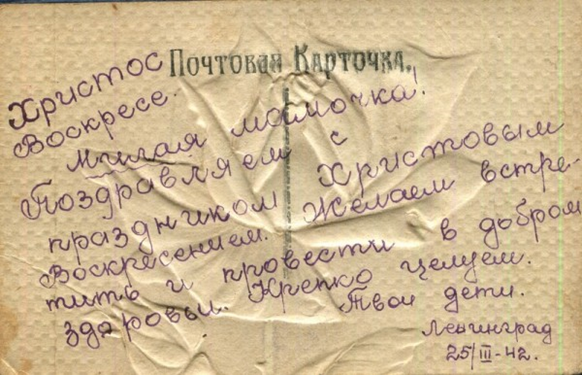 Почтовая Карточка.
Христос
Воскресе.
Милая мамочка!
Поздравляем с
праздником Христовым
Воскресением. Желаем встре-
тить и провести в добром
здоровьи. Крепко целуем.
Твои дети.
Ленинград
25/III-42.